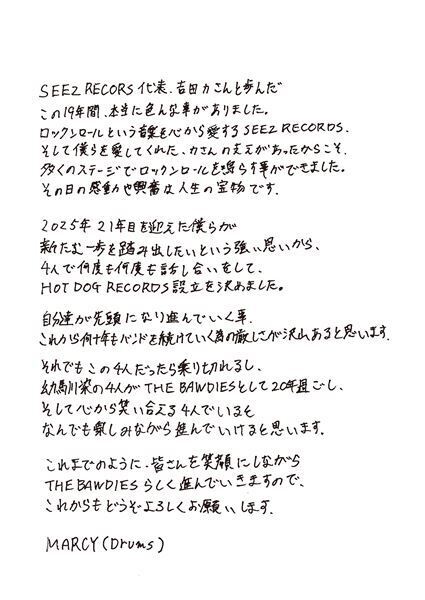 SEEZ RECORS代表、吉田カさんと歩んだ
この19年間、本当に色んな事がありました。
ロックンロールという音楽を心から愛するSEEZ RECORDS、
そして僕らを愛してくれた、カさんの支えがあったからこそ、
多くのステージでロックンロールを鳴らす事ができました。
その日の感動や興奮は人生の宝物です。
2025年21年目を迎えた僕らが
新たな一歩を踏み出したいという強い思いから、
4人で何度も何度も話し合いをして、
HOT DOG RECORDS設立を決めました。
自分達が先頭になり進んでいく事、
これから何十年もバンドを続けていく為の厳しさが沢山あると思います。
それでもこの4人だったら乗り切れるし、
幼馬川染の4人がTHE BAWDIESとして20年過ごし、
そして心から笑い合える4人でいると
なんでも楽しみながら進んでいけると思います。
これまでのように、皆さんを笑顔にしながら
THE BAWDIESらしく進んでいきますので、
これからもどうぞよろしくお願いします。
MARCY(Drums)